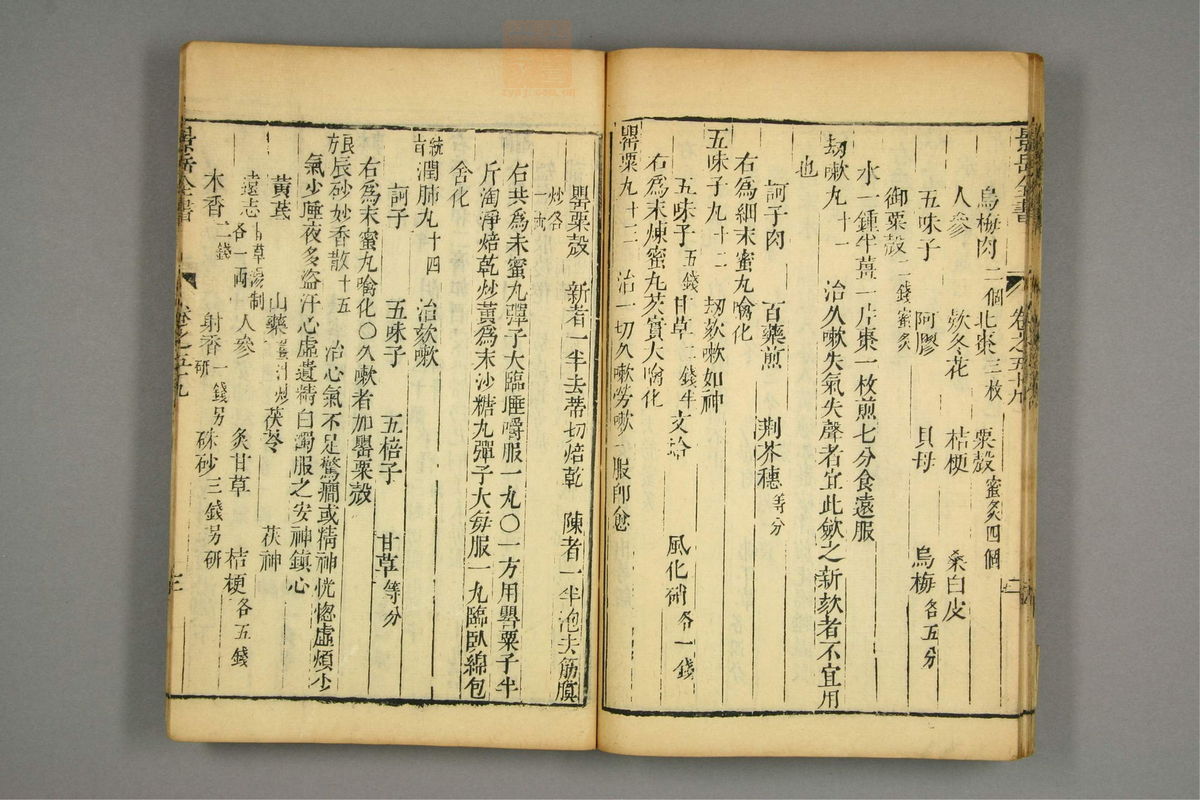 景岳全書 卷之五十九
烏梅肉二個 北棗三枚 粟殼蜜炙四個
人參 欵冬花 桔梗 桑白皮
五味子 阿膠 貝母 烏梅各五分
御粟殼一錢蜜炙
水一鍾半薑一片棗一枚煎七分食遠服
劫嗽丸十一 治久嗽失氣失聲者宜此歛之新欬者不宜用
也
訶子肉 百藥煎 荆芥穗等分
右爲細末蜜丸噙化
五味子丸十二 劫欬嗽如神
五味子五錢 甘草二錢半 文蛤 風化硝各一錢
右爲末煉蜜丸芡實大噙化
罌粟丸十三 治一切久嗽勞嗽一服卽愈
罌粟殼 新者一半去蒂切焙乾 陳者一半泡去筋膜
炒各一兩
右共爲末蜜丸彈子大臨睡嚼服一丸〇一方用罌粟子半
斤淘淨焙乾炒黃爲末沙糖丸彈子大每服一丸臨臥綿包
舍化
統旨潤肺丸十四 治欬嗽
訶子 五味子 五棓子 甘草等分
右爲末蜜丸噙化〇久嗽者加罌粟殼
良方辰砂妙香散十五 治心氣不足驚癎或精神恍惚虛煩少
氣少睡夜多盜汗心虛遺精白濁服之安神鎮心
黃茋 山藥薑汁炒 茯苓 茯神
遠志甘草湯制各一兩 人參 炙甘草 桔梗各五錢
木香二錢 射香一錢另研 硃砂三錢另研
景岳全書 卷之五十九 三